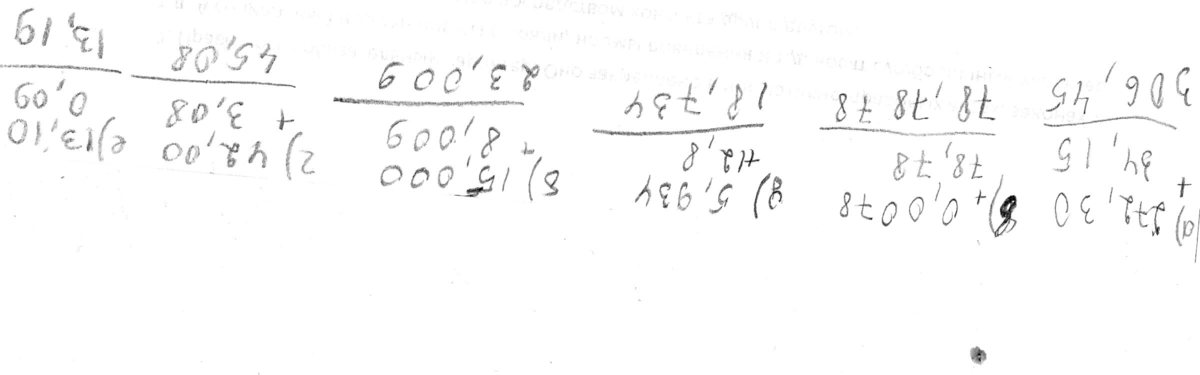 а) 272,30
+
34,15
306,45
б) + 0,0078
78,78
78,7878
д) 5,934
+12,8
18,734
в) 15,000
+ 8,009
23,009
г) 42,00
+ 3,08
45,08
е) 13,10
0,09
13,19